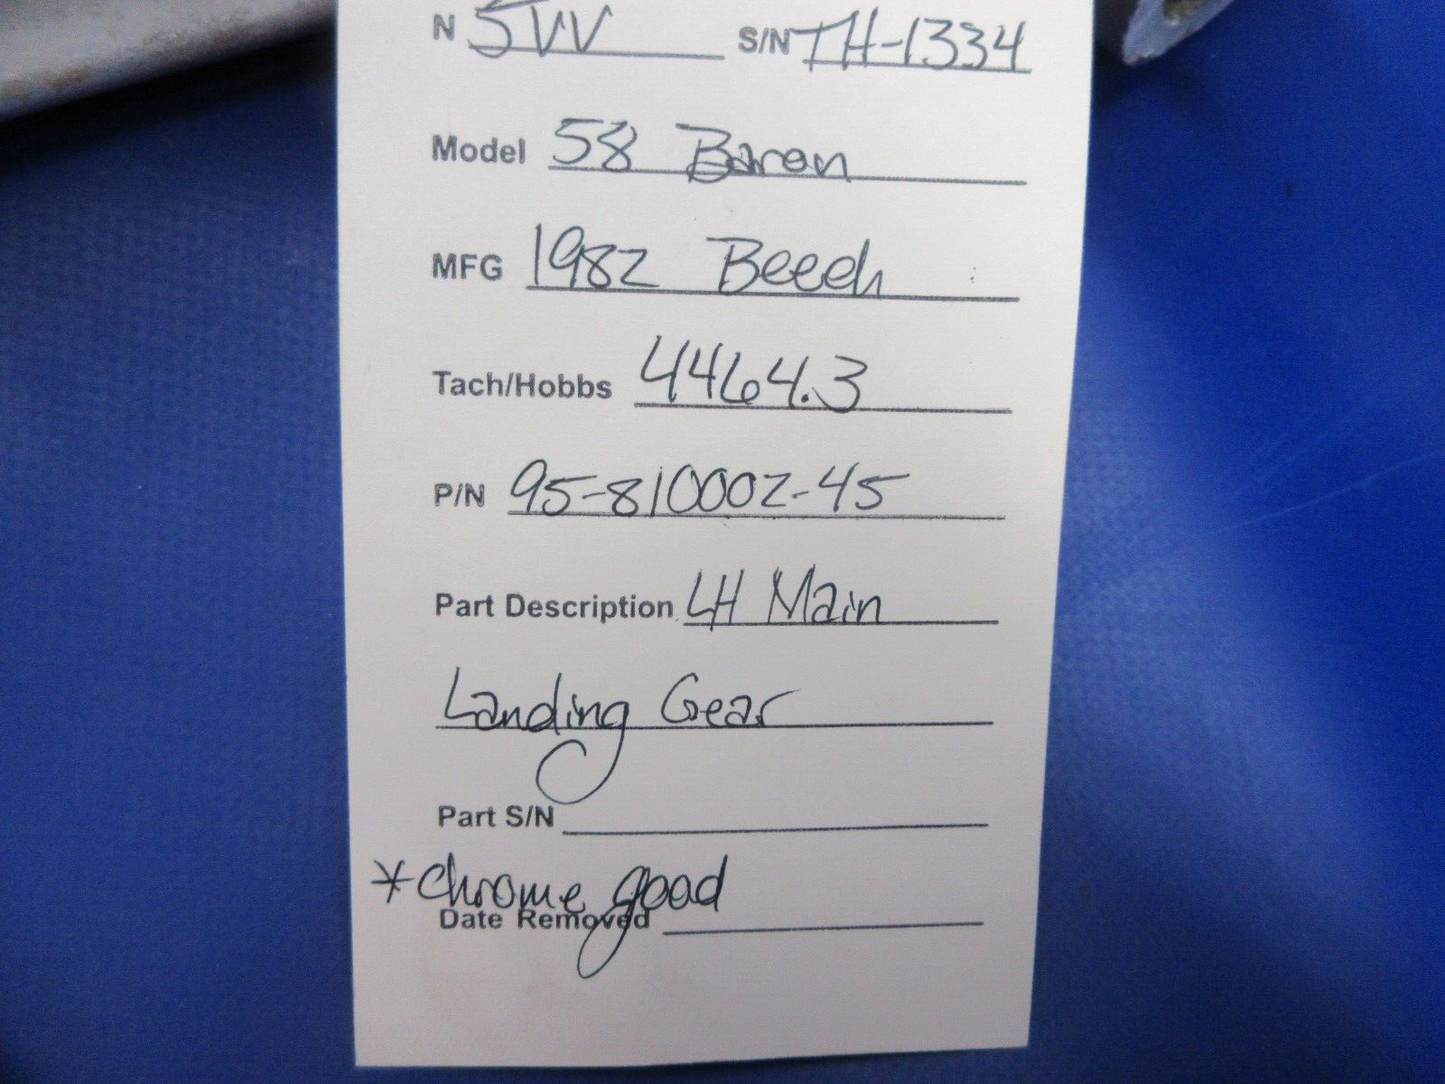 N 5VV S/N TH-1334
Model 58 Baron
MFG 1982 Beech
Tach/Hobbs 4464.3
P/N 95-810002-45
Part Description LH Main
Landing Gear
Part S/N
*chrome good
Date Removed